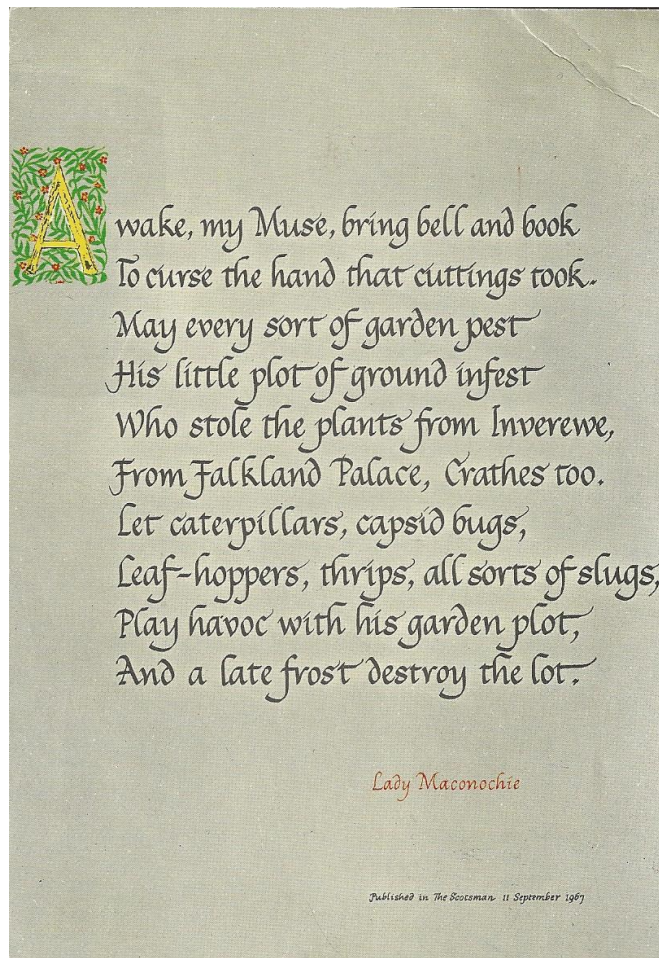 Awake, my Muse, bring bell and book
To curse the hand that cuttings took.
May every sort of garden pest
His little plot of ground infest
Who stole the plants from Inverewe,
From Falkland Palace, Crathes too.
Let caterpillars, capsid bugs,
Leaf-hoppers, thrips, all sorts of slugs,
Play havoc with his garden plot,
And a late frost destroy the lot.
Lady Maconochie
Published in The Scotsman 11 September 1967